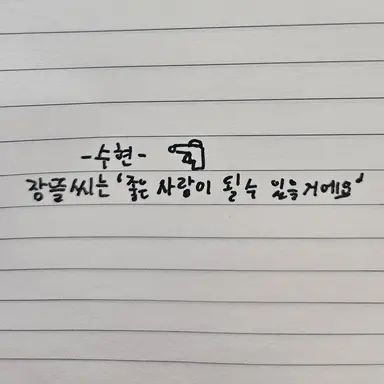 -수현-
장뜰씨는 '좋은 사람이 될 수 있을거에요'